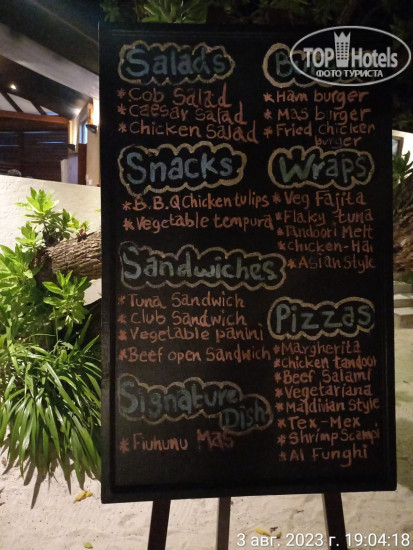 TOP Hotels
ФОТО ТУРИСТА
Salads
*Cob Salad
*Caesar Salad
*Chicken Salad
Snacks
*B.B.Q Chicken tulips
*Vegetable tempura
Sandwiches
*Tuna Sandwich
*Club Sandwich
*Vegetable panini
*Beef open Sandwich
Signature
Dish
*Fiuhunu Mas
*Ham burger
*Mas birger
*Fried Chicken
burger
Wraps
*Veg Fajita
*Flaky tuna
*Tandoori Melt
*Chicken-Hai
*Asian Style
Pizzas
*Margherita
*Chicken tandoori
*Beef Salami
*Vegetariana
*Maldivian Style
*Tex-Mex
*Shrimp Scampi
*Al Funghi
3 авг. 2023 г. 19:04:18